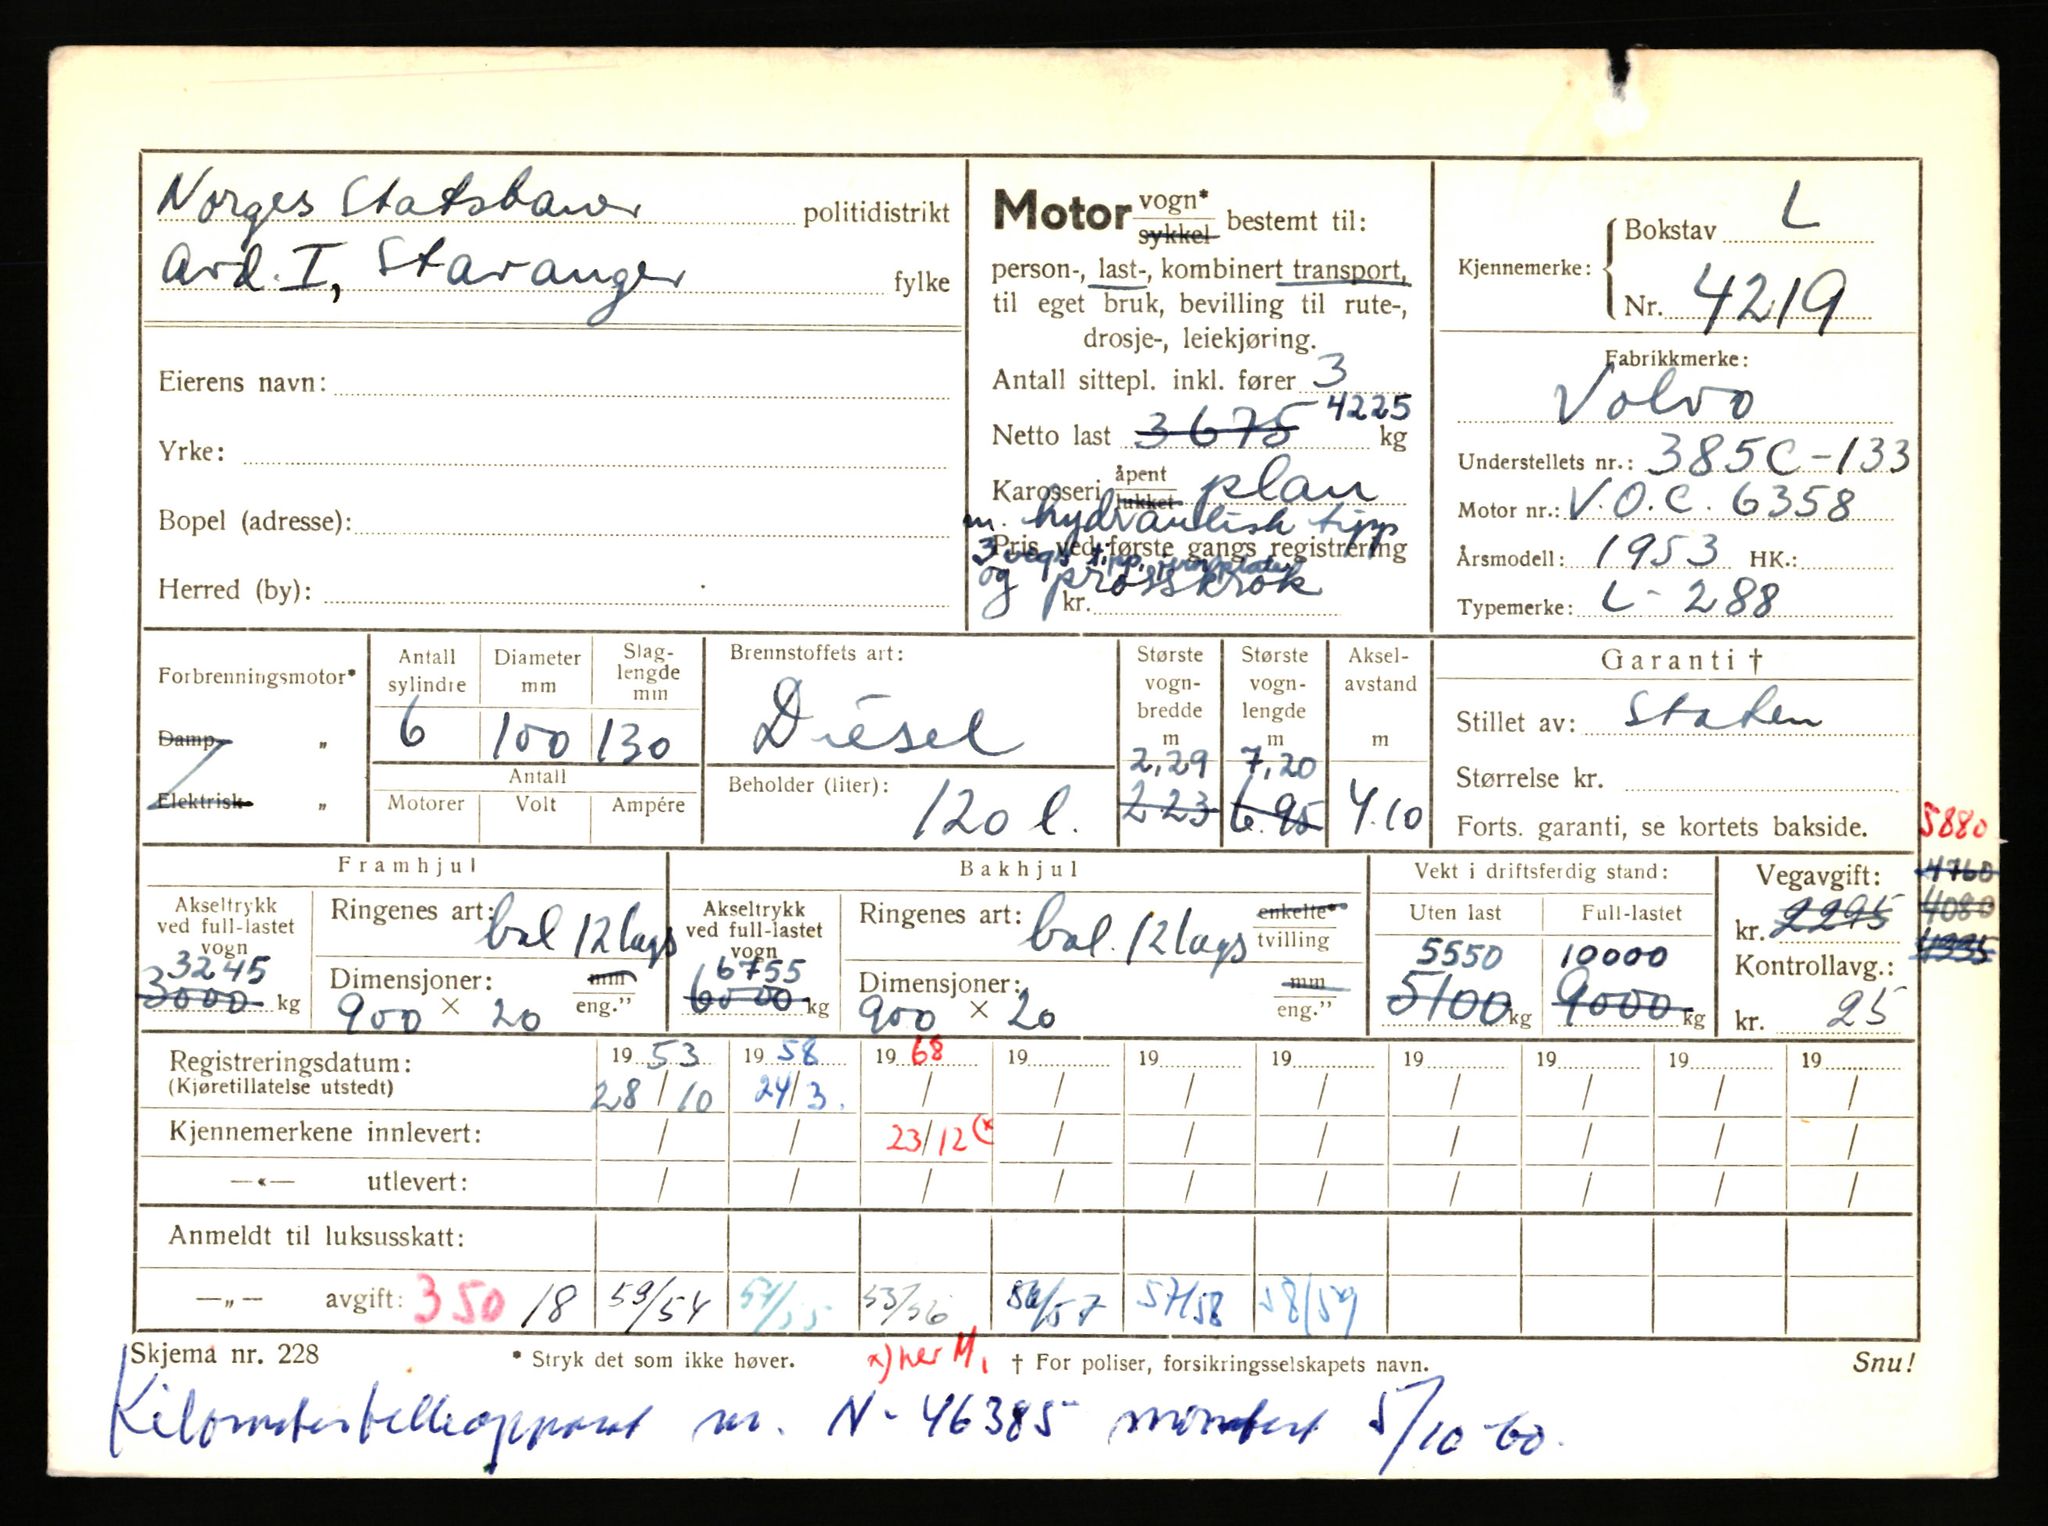 Norges Statsbaner politidistrikt
Avd. I, Stavanger fylke
Eierens navn:
Yrke:
Bopel (adresse):
Herred (by):
Motor vogn* sykkel bestemt til:
person-, last-, kombinert transport,
til eget bruk, bevilling til rute-,
drosje-, leiekjøring.
Antall sittepl. inkl. fører 3
Netto last 3675 4225 kg
Karosseri åpent lukket plan
m. hydraulisk tipp
Pris ved første gangs registrering
3 vegs tipp,
og
kr.
Kjennemerke: Bokstav L
Nr. 4219
Fabrikkmerke:
Volvo
Understellets nr.: 385C-133
Motor nr.: V.O.C. 6358
Årsmodell: 1953 HK.:
Typemerke: L-288
Forbrenningsmotor*
Damp- „
Elektrisk- „
Antall sylindre 6
Diameter mm 100
Slag-
lengde
mm 130
Antall
Motorer Volt Ampére
Brennstoffets art:
Diesel
Beholder (liter):
120 l.
Største
vogn-
bredde
m
2,29
2 23
Største
vogn-
lengde
m
7,20
6.95
Aksel-
avstand
m
4.10
Garanti †
Stillet av: Staten
Størrelse kr.
Forts. garanti, se kortets bakside.
5880
4760
4080
Framhjul
Akseltrykk
ved full-lastet
vogn
3245
3000 kg
Ringenes art: bal 12 lags
Dimensjoner: mm
900 × 20 eng.”
Bakhjul
Akseltrykk
ved full-lastet
vogn
6755
6000 kg
Ringenes art: bal. 12 lags enkelte* tvilling
Dimensjoner: mm
900 × 20 eng.”
Vekt i driftsferdig stand:
Uten last Full-lastet
5550 10000
5100 kg 9000 kg
Vegavgift:
kr. 2295
Kontrollavg.:
kr. 25
Registreringsdatum: 19 53 19 58 19 68 19 19 19 19 19 19 19
(Kjøretillatelse utstedt) 28/10 24/3. / / / / / / / /
Kjennemerkene innlevert: / / 23/12 (x / / / / / / /
—«— utlevert: / / / / / / / / / /
Anmeldt til luksusskatt:
—„— avgift: 350 /8 53/54 54/55 55/56 56/57 57/58 58/59
Skjema nr. 228 * Stryk det som ikke høver. x) † For poliser, forsikringsselskapets navn. Snu!
Kilometertelleapparat nr. N-46385 montert 5/10-60.